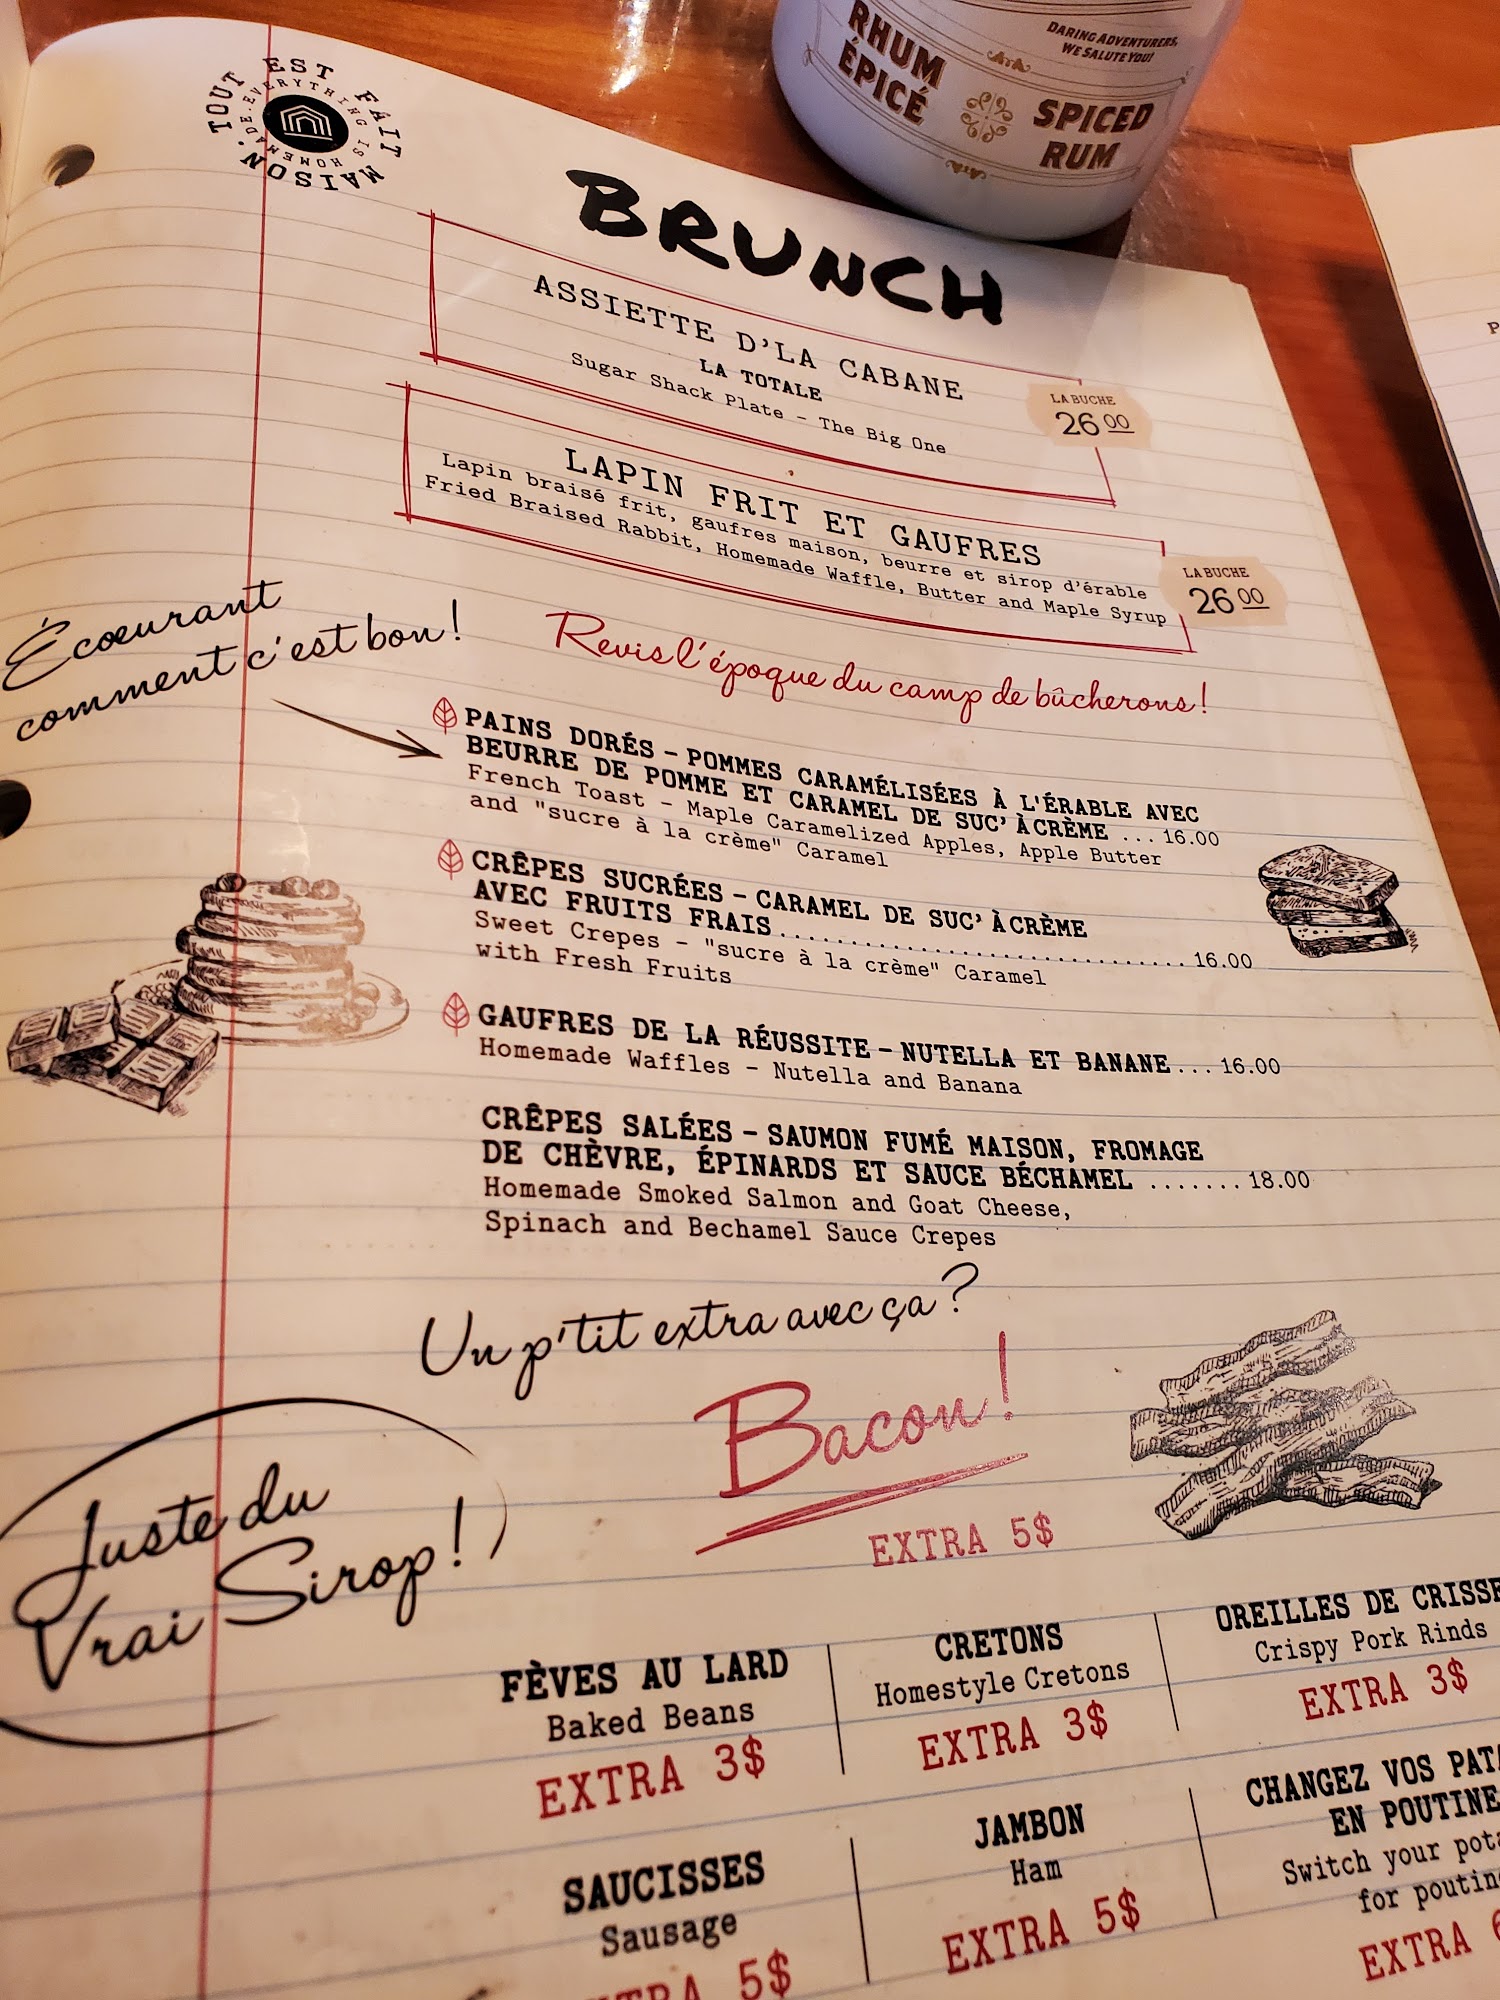 RHUM
ÉPICÉ
DARING ADVENTURERS,
WE SALUTE YOU!
SPICED
RUM
TOUT EST FAIT MAISON.
EVERYTHING IS HOMEMADE.
BRUNCH
ASSIETTE D'LA CABANE
LA TOTALE
Sugar Shack Plate - The Big One
LA BUCHE
26 00
LAPIN FRIT ET GAUFRES
Lapin braisé frit, gaufres maison, beurre et sirop d'érable
Fried Braised Rabbit, Homemade Waffle, Butter and Maple Syrup
LA BUCHE
26 00
Écœurant
comment c'est bon!
Revis l'époque du camp de bûcherons!
PAINS DORÉS - POMMES CARAMÉLISÉES À L'ÉRABLE AVEC
BEURRE DE POMME ET CARAMEL DE SUC' À CRÈME ... 16.00
French Toast - Maple Caramelized Apples, Apple Butter
and "sucre à la crème" Caramel
CRÊPES SUCRÉES - CARAMEL DE SUC' À CRÈME
AVEC FRUITS FRAIS .................................. 16.00
Sweet Crepes - "sucre à la crème" Caramel
with Fresh Fruits
GAUFRES DE LA RÉUSSITE - NUTELLA ET BANANE... 16.00
Homemade Waffles - Nutella and Banana
CRÊPES SALÉES - SAUMON FUMÉ MAISON, FROMAGE
DE CHÈVRE, ÉPINARDS ET SAUCE BÉCHAMEL ....... 18.00
Homemade Smoked Salmon and Goat Cheese,
Spinach and Bechamel Sauce Crepes
Un p'tit extra avec ça?
Bacon!
EXTRA 5$
Juste du
Vrai Sirop!
FÈVES AU LARD
Baked Beans
EXTRA 3$
CRETONS
Homestyle Cretons
EXTRA 3$
OREILLES DE CRISSE
Crispy Pork Rinds
EXTRA 3$
SAUCISSES
Sausage
EXTRA 5$
JAMBON
Ham
EXTRA 5$
CHANGEZ VOS
EN POUTINE
Switch your
for
EXTRA